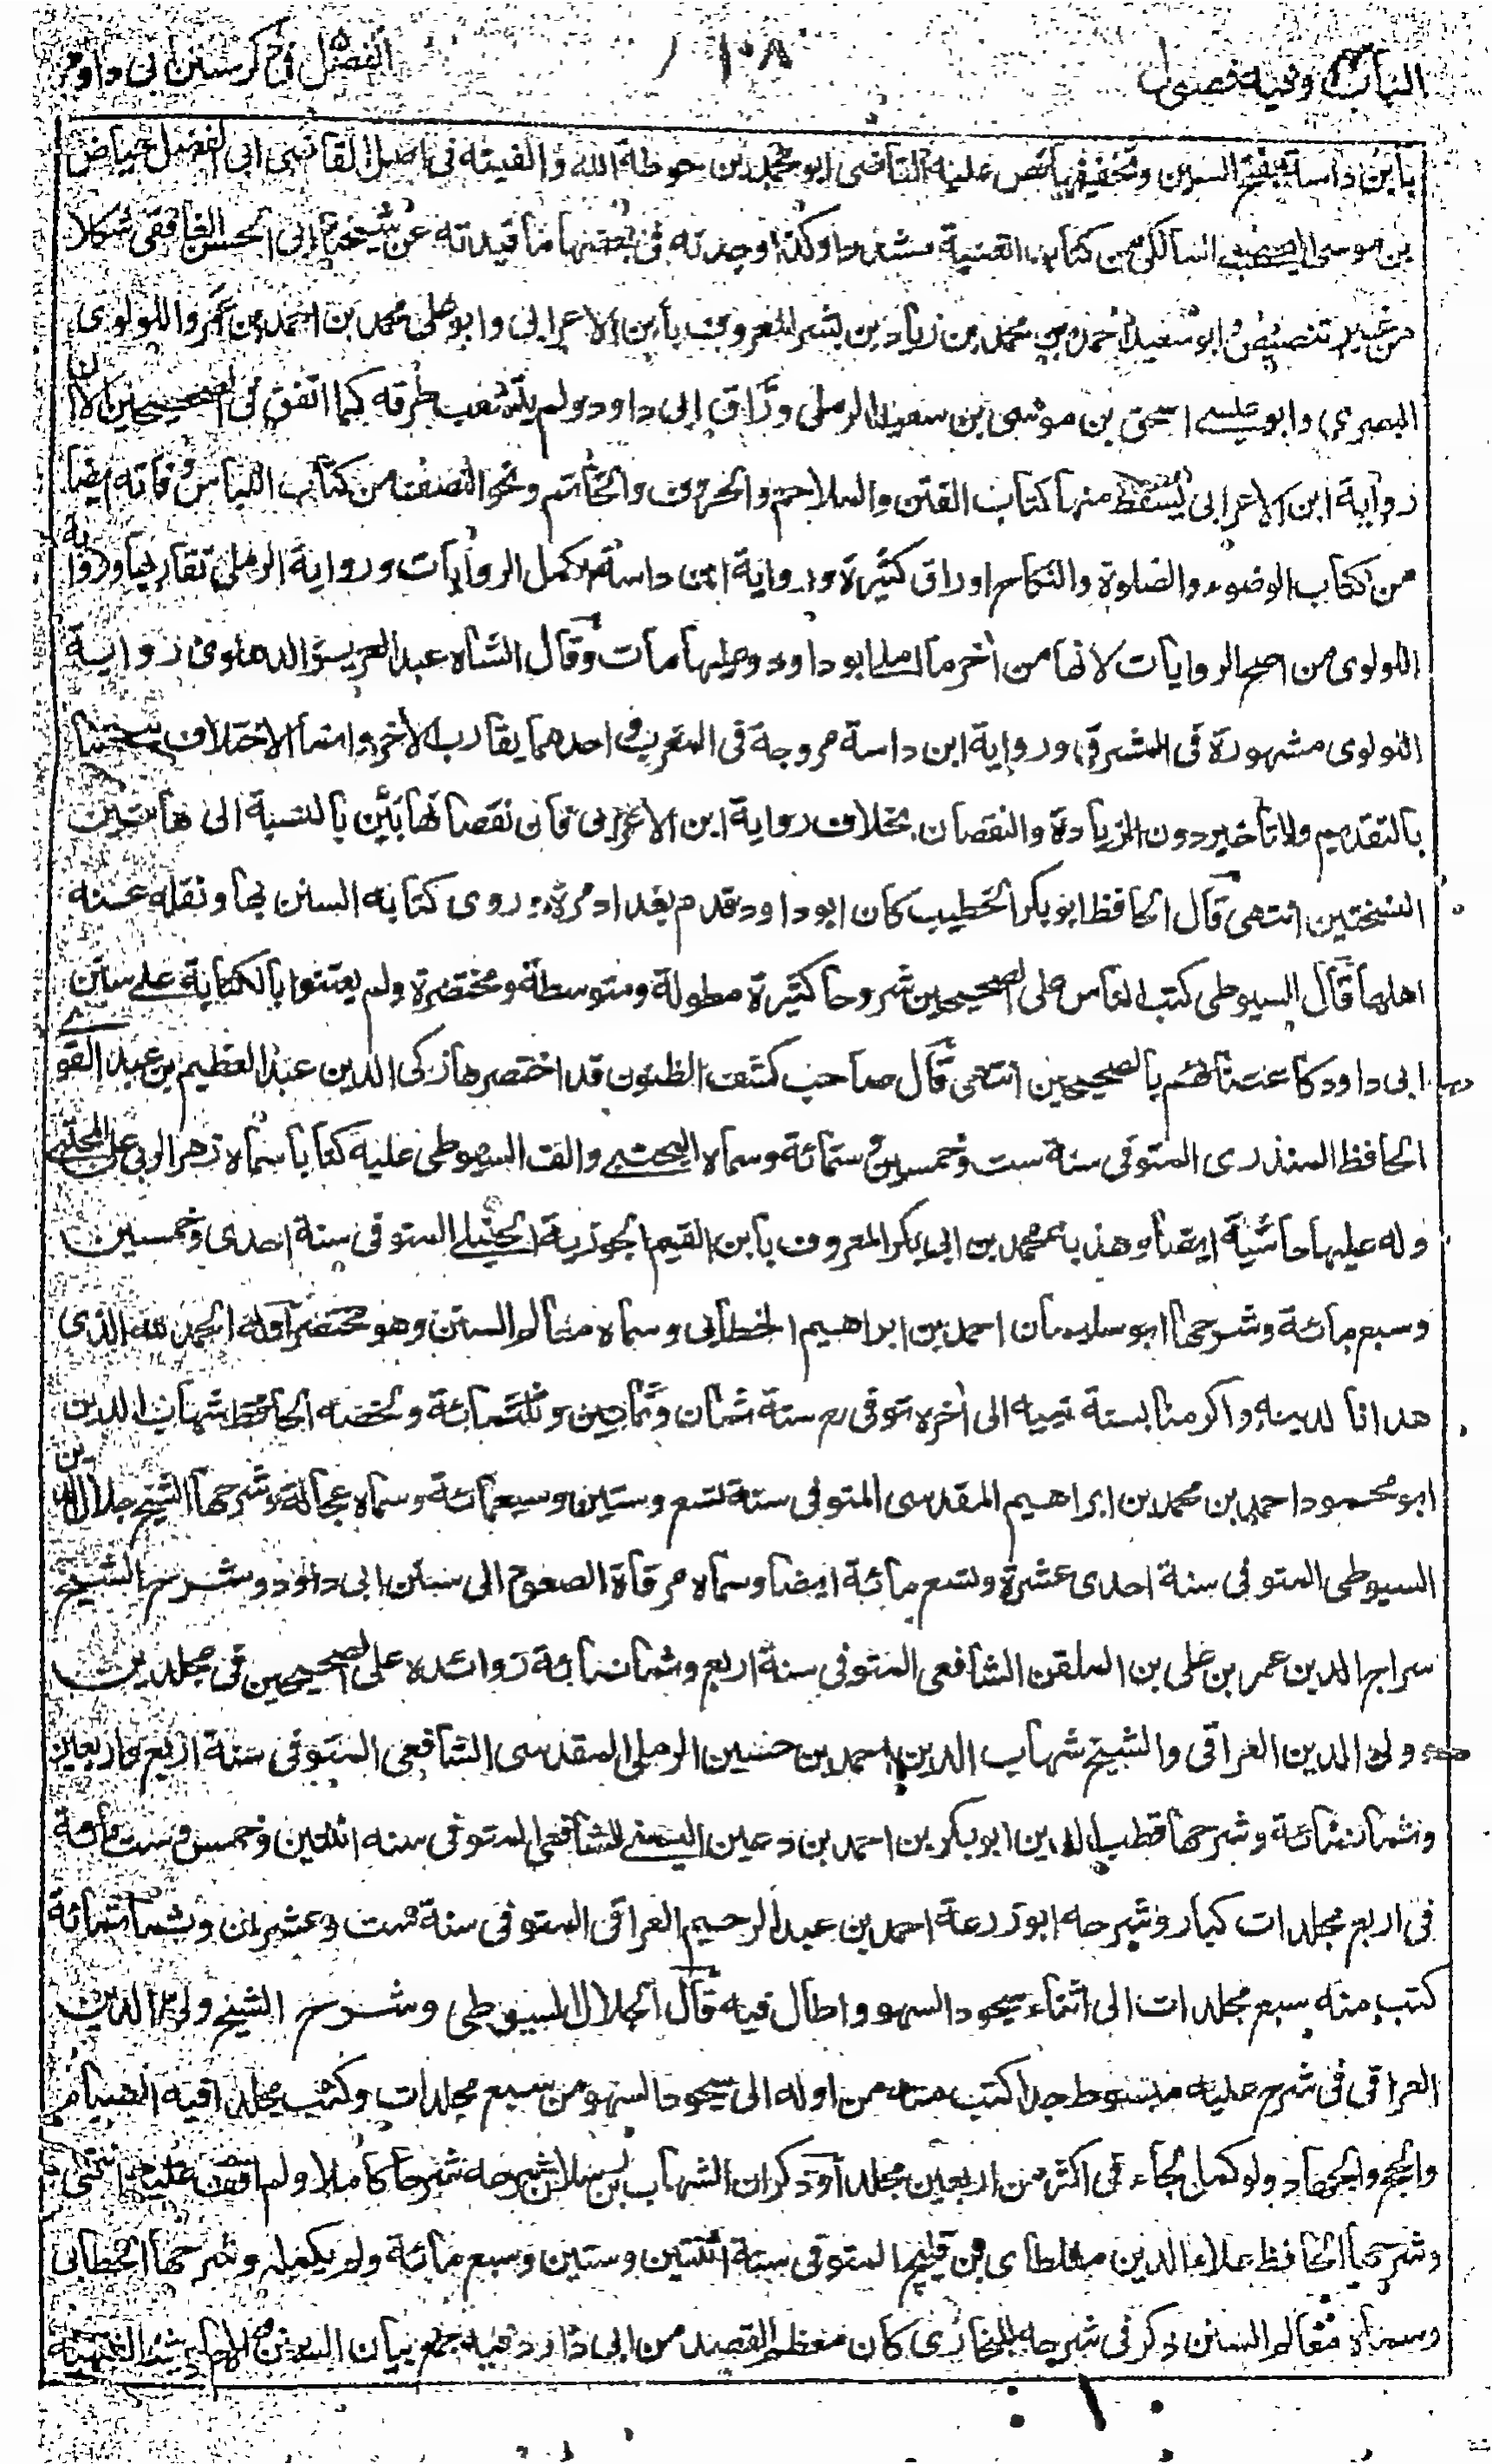 الباب وفيه فصول
١٠٨
الفصل في ذكر سنن ابي داود
بابن داسة بفتح السين وتخفيفها نص عليه القاضي ابو محمد بن حوطة الله والفيته في اصل القاضي ابي الفضل عياض
بن موسى اليحصبي المالكي من كتاب الغنية مشددا وكذا وجدته في بعض ما قيدته عن شيخنا ابي الحسن الغافقي شكلا
من غير تنصيص وابو سعيد احمد بن محمد بن زياد بن بشر المعروف بابن الاعرابي وابو علي محمد بن احمد بن عمرو اللولوى
البصري وابو عيسے اسحق بن موسى بن سعيد الرملي وراق ابي داود ولم يتشعب طرقه كما اتفق في الصحيحين الا ان
رواية ابن الاعرابي يسقط منها كتاب الفتن والملاحم والحروف والخاتم ونحو النصف من كتاب اللباس وفاته ايضا
من كتاب الوضوء والصلوة والنكاح اوراق كثيرة ورواية ابن داسة اكمل الروايات ورواية الرملي تقاربها ورواية
اللولوى من اصح الروايات لانها من اخر ما املے ابو داود وعليها مات وقال الشاه عبد العزيز الدهلوى رواية
اللولوى مشهورة في المشرق ورواية ابن داسة مروجة في المغرب واحدهما يقارب الاخر وانما الاختلاف بينهما
بالتقديم والتاخير دون الزيادة والنقصان بخلاف رواية ابن الاعرابي فان نقصانها بين بالنسبة الى هاتين
النسختين انتهى قال الحافظ ابو بكر الخطيب كان ابو داود قدم بغداد مرة وروى كتابه السنن بها ونقله عنه
اهلها قال السيوطي كتب الناس على الصحيحين شروحا كثيرة مطولة ومتوسطة ومختصرة ولم يعتنوا بالكتابة علے سنن
ابي داود كاعتنائهم بالصحيحين انتهى قال صاحب كشف الظنون قد اختصرها زكي الدين عبد العظيم بن عبد القوى
الحافظ المنذرى المتوفى سنة ست وخمسين وستمائة وسماه المجتبے والف السيوطي عليه كتابا سماه زهر الربى على المجتبے
وله عليها حاشية ايضا وهذبه محمد بن ابي بكر المعروف بابن القيم الجوزية الحنبلے المتوفى سنة احدى وخمسين
وسبع مائة وشرحها ابو سليمان احمد بن ابراهيم الخطابي وسماه معالم السنن وهو مختصر اوله الحمد لله الذى
هدانا لدينه واكرمنا بسنة نبيه الى اخره توفى رح سنة ثمان وثمانين وثلثمائة ولخصه الحافظ شهاب الدين
ابو محمود احمد بن محمد بن ابراهيم المقدسى المتوفى سنة تسع وستين وسبعمائة وسماه عجالة وشرحها الشيخ جلال الدين
السيوطي المتوفى سنة احدى عشرة وتسع مائة ايضا وسماه مرقاة الصعود الى سنن ابي داود وشرح الشيخ
سراج الدين عمر بن علي بن الملقن الشافعي المتوفى سنة اربع وثمانمائة زوائده على الصحيحين في مجلدين
وولي الدين العراقي والشيخ شهاب الدين احمد بن حسين الرملي المقدسى الشافعي المتوفى سنة اربع واربعين
وثمانمائة وشرحها قطب الدين ابو بكر بن احمد بن دعين اليمنے الشافعي المتوفى سنه اثنتين وخمسين وست مائة
في اربع مجلدات كبار وشرحه ابو زرعة احمد بن عبد الرحيم العراقي المتوفى سنة ست وعشرين وثمانمائة
كتب منه سبع مجلدات الى اثناء سجود السهو واطال فيه قال الجلال السيوطي وشرح الشيخ ولي الدين
العراقي في شرح عليه مبسوط جدا كتب منه من اوله الى سجود السهو من سبع مجلدات وكتب مجلدا فيه الصيام
والحج والجهاد ولو كمل لجاء في اكثر من اربعين مجلدا وذكر ان الشهاب بن رسلان شرحه شرحا كاملا ولم اقف عليه انتهى
وشرحها الحافظ علاء الدين مغلطاى بن قليج المتوفى سنة اثنتين وستين وسبع مائة ولم يكمله وشرحها الخطابي
وسماه معالم السنن ذكر في شرحه للبخارى كان معظم القصد من ابي داود فيه جمع بيان السنن